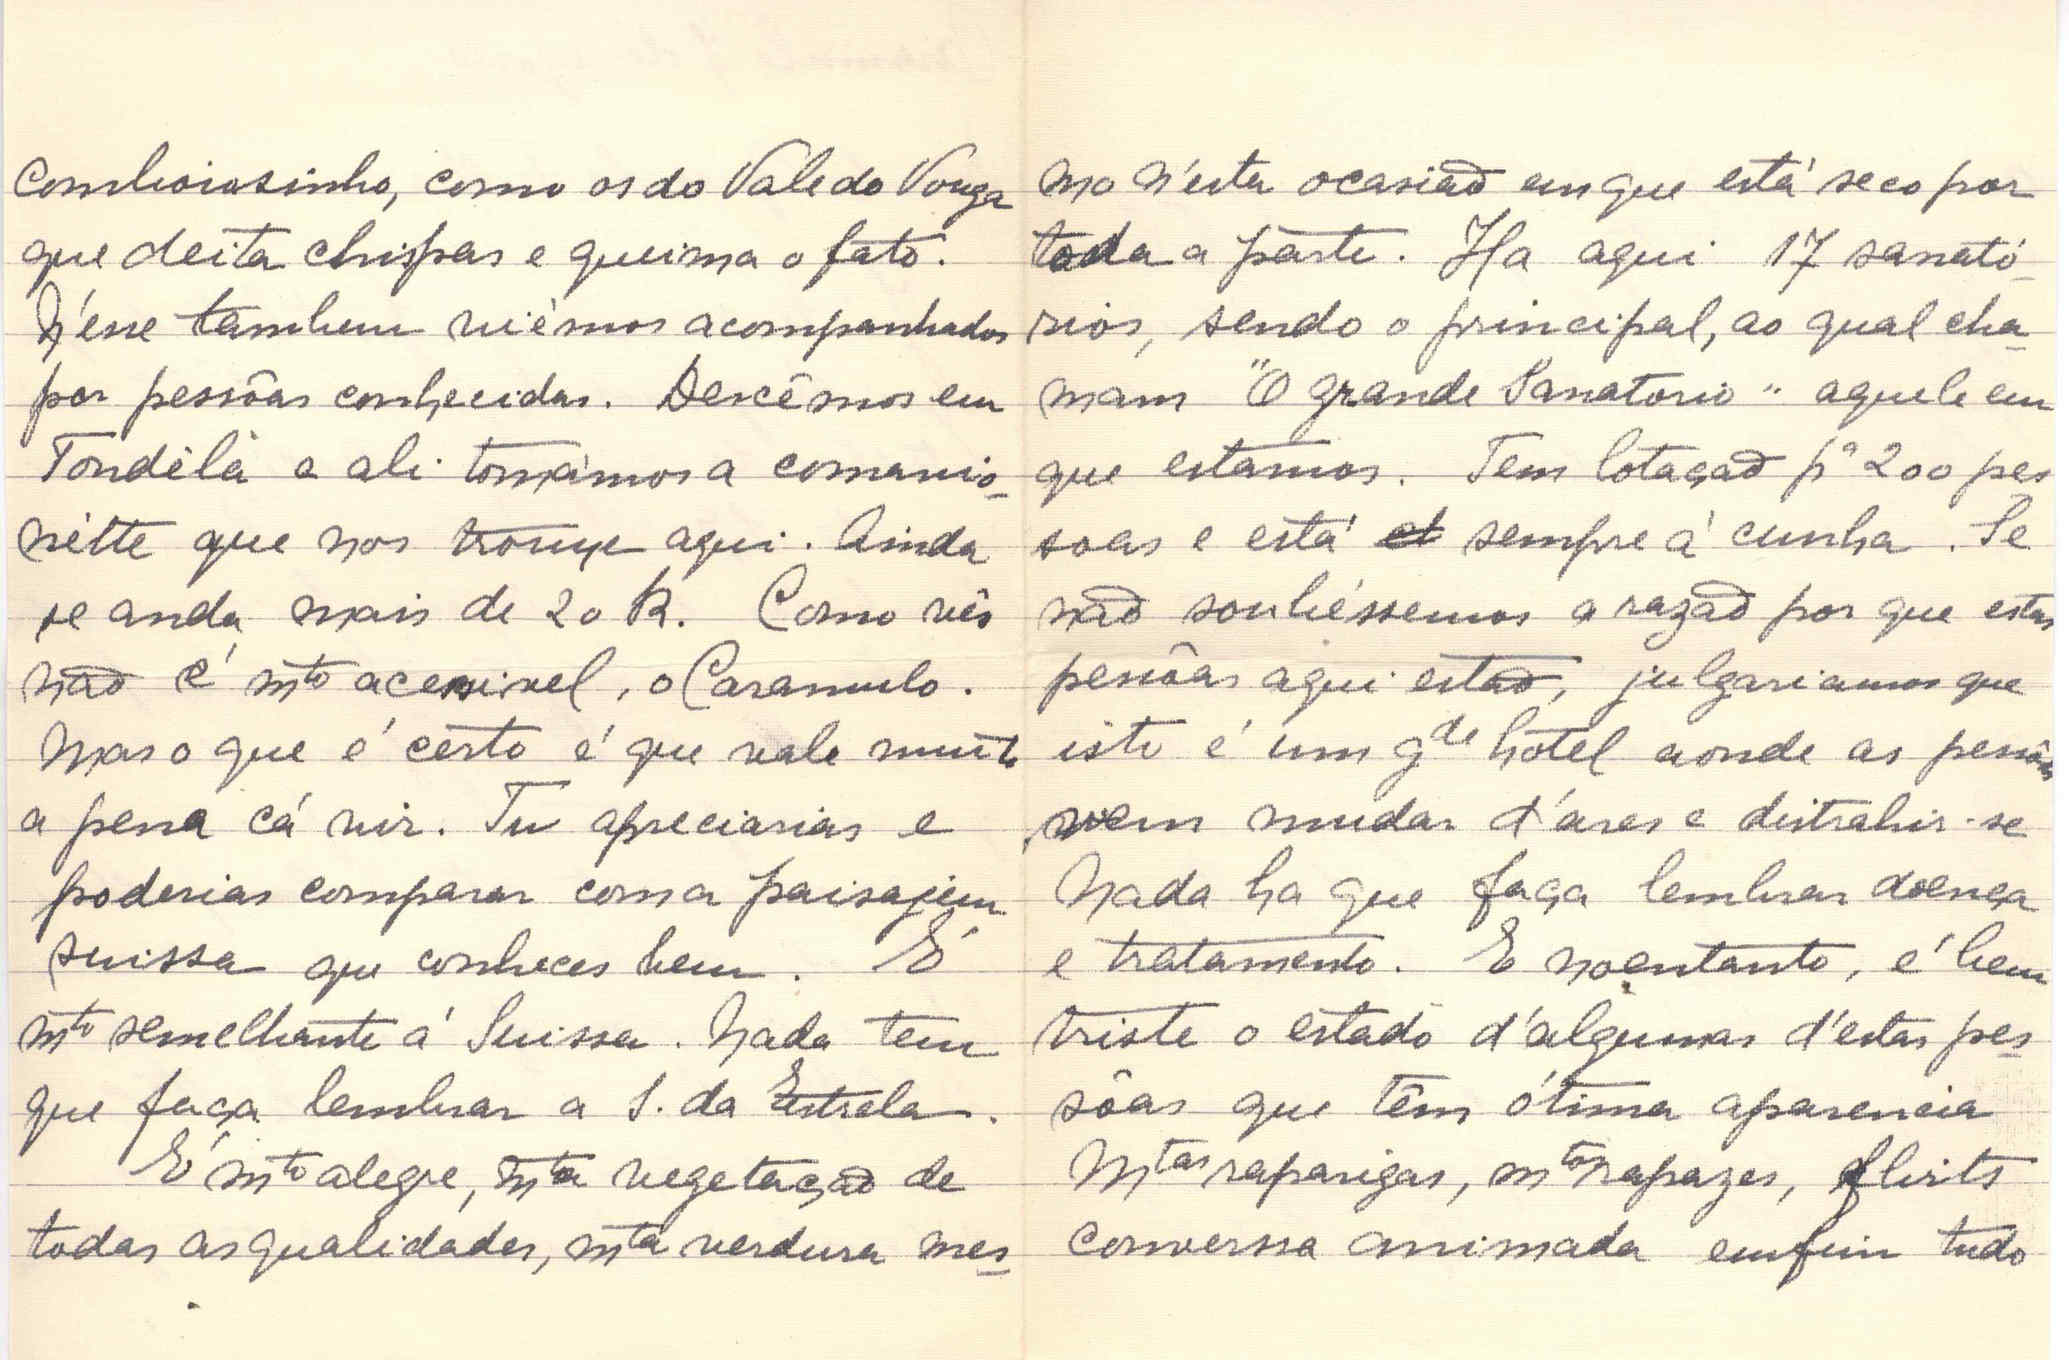 comboiosinho, como os do Vale do Vouga
que deita chispas e queima o fato.
N'ésse tambem viémos acompanhados
por pessôas conhecidas. Descêmos em
Tondéla e ali tomámos a comanio-
nétte que nos trouxe aqui. Ainda
se anda mais de 20 K. Como vês
não é mto acessivel, o Caramulo.
Mas o que é certo é que vale muito
a pena cá vir. Tu apreciarias e
poderias comparar com a paisajem
suissa que conheces bem. É
mto semelhante á Suissa. Nada tem
que faça lembrar a S. da Estrela.
É mto alegre, mta vegetação de
todas as qualidades, mta verdura mes-
mo n'esta ocasião em que está seco por
toda a parte. Ha aqui 17 sanató-
rios, sendo o principal, ao qual cha-
mam "O grande Sanatorio" aquele em
que estamos. Tem lotação pa 200 pes
soas e está sempre á cunha. Se
não soubéssemos a razão por que estas
pessôas aqui estão, julgariamos que
isto é um gde hotel aonde as pessôas
vem mudar d'áres e distrahir-se
Nada ha que faça lembrar doença
e tratamento. E no entanto, é bem
triste o estado d'algumas d'estas pes-
sôas que têm ótima aparencia
Mtas raparigas, mtos rapazes, flirts
conversa animada emfim tudo